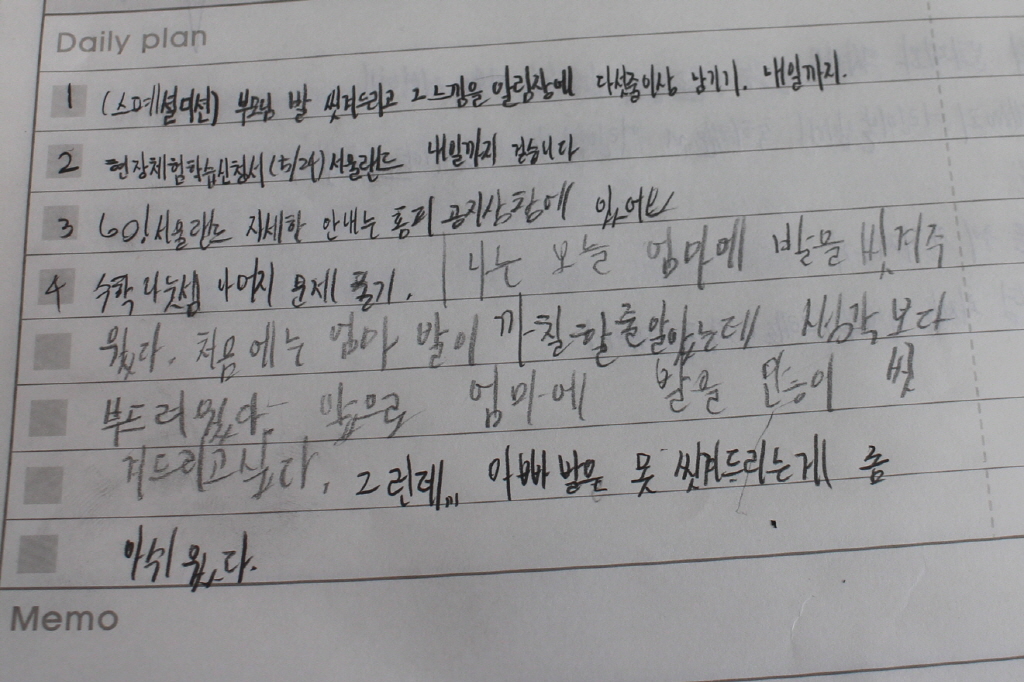 Daily plan
1 (스페셜미션) 부모님 발 씻겨드리고 그 느낌을 알림장에 다섯줄이상 남기기. 내일까지.
2 현장체험학습신청서(5/24)서울랜드 내일까지 걷습니다
3 GO!서울랜드 자세한 안내는 홈피 공지사항에 있어요
4 수학 나눗셈 나머지 문제 풀기. 나는 오늘 엄마에 발믈 씻겨주
웠다. 처음에는 엄마 발이 까칠할줄알았는데 생각보다
부드러웠다. 앞으로 엄마에 발을 씻
겨드리고싶다. 그런데,,, 아빠 발은 못 씻겨드리는게 좀
아쉬웠다.
Memo